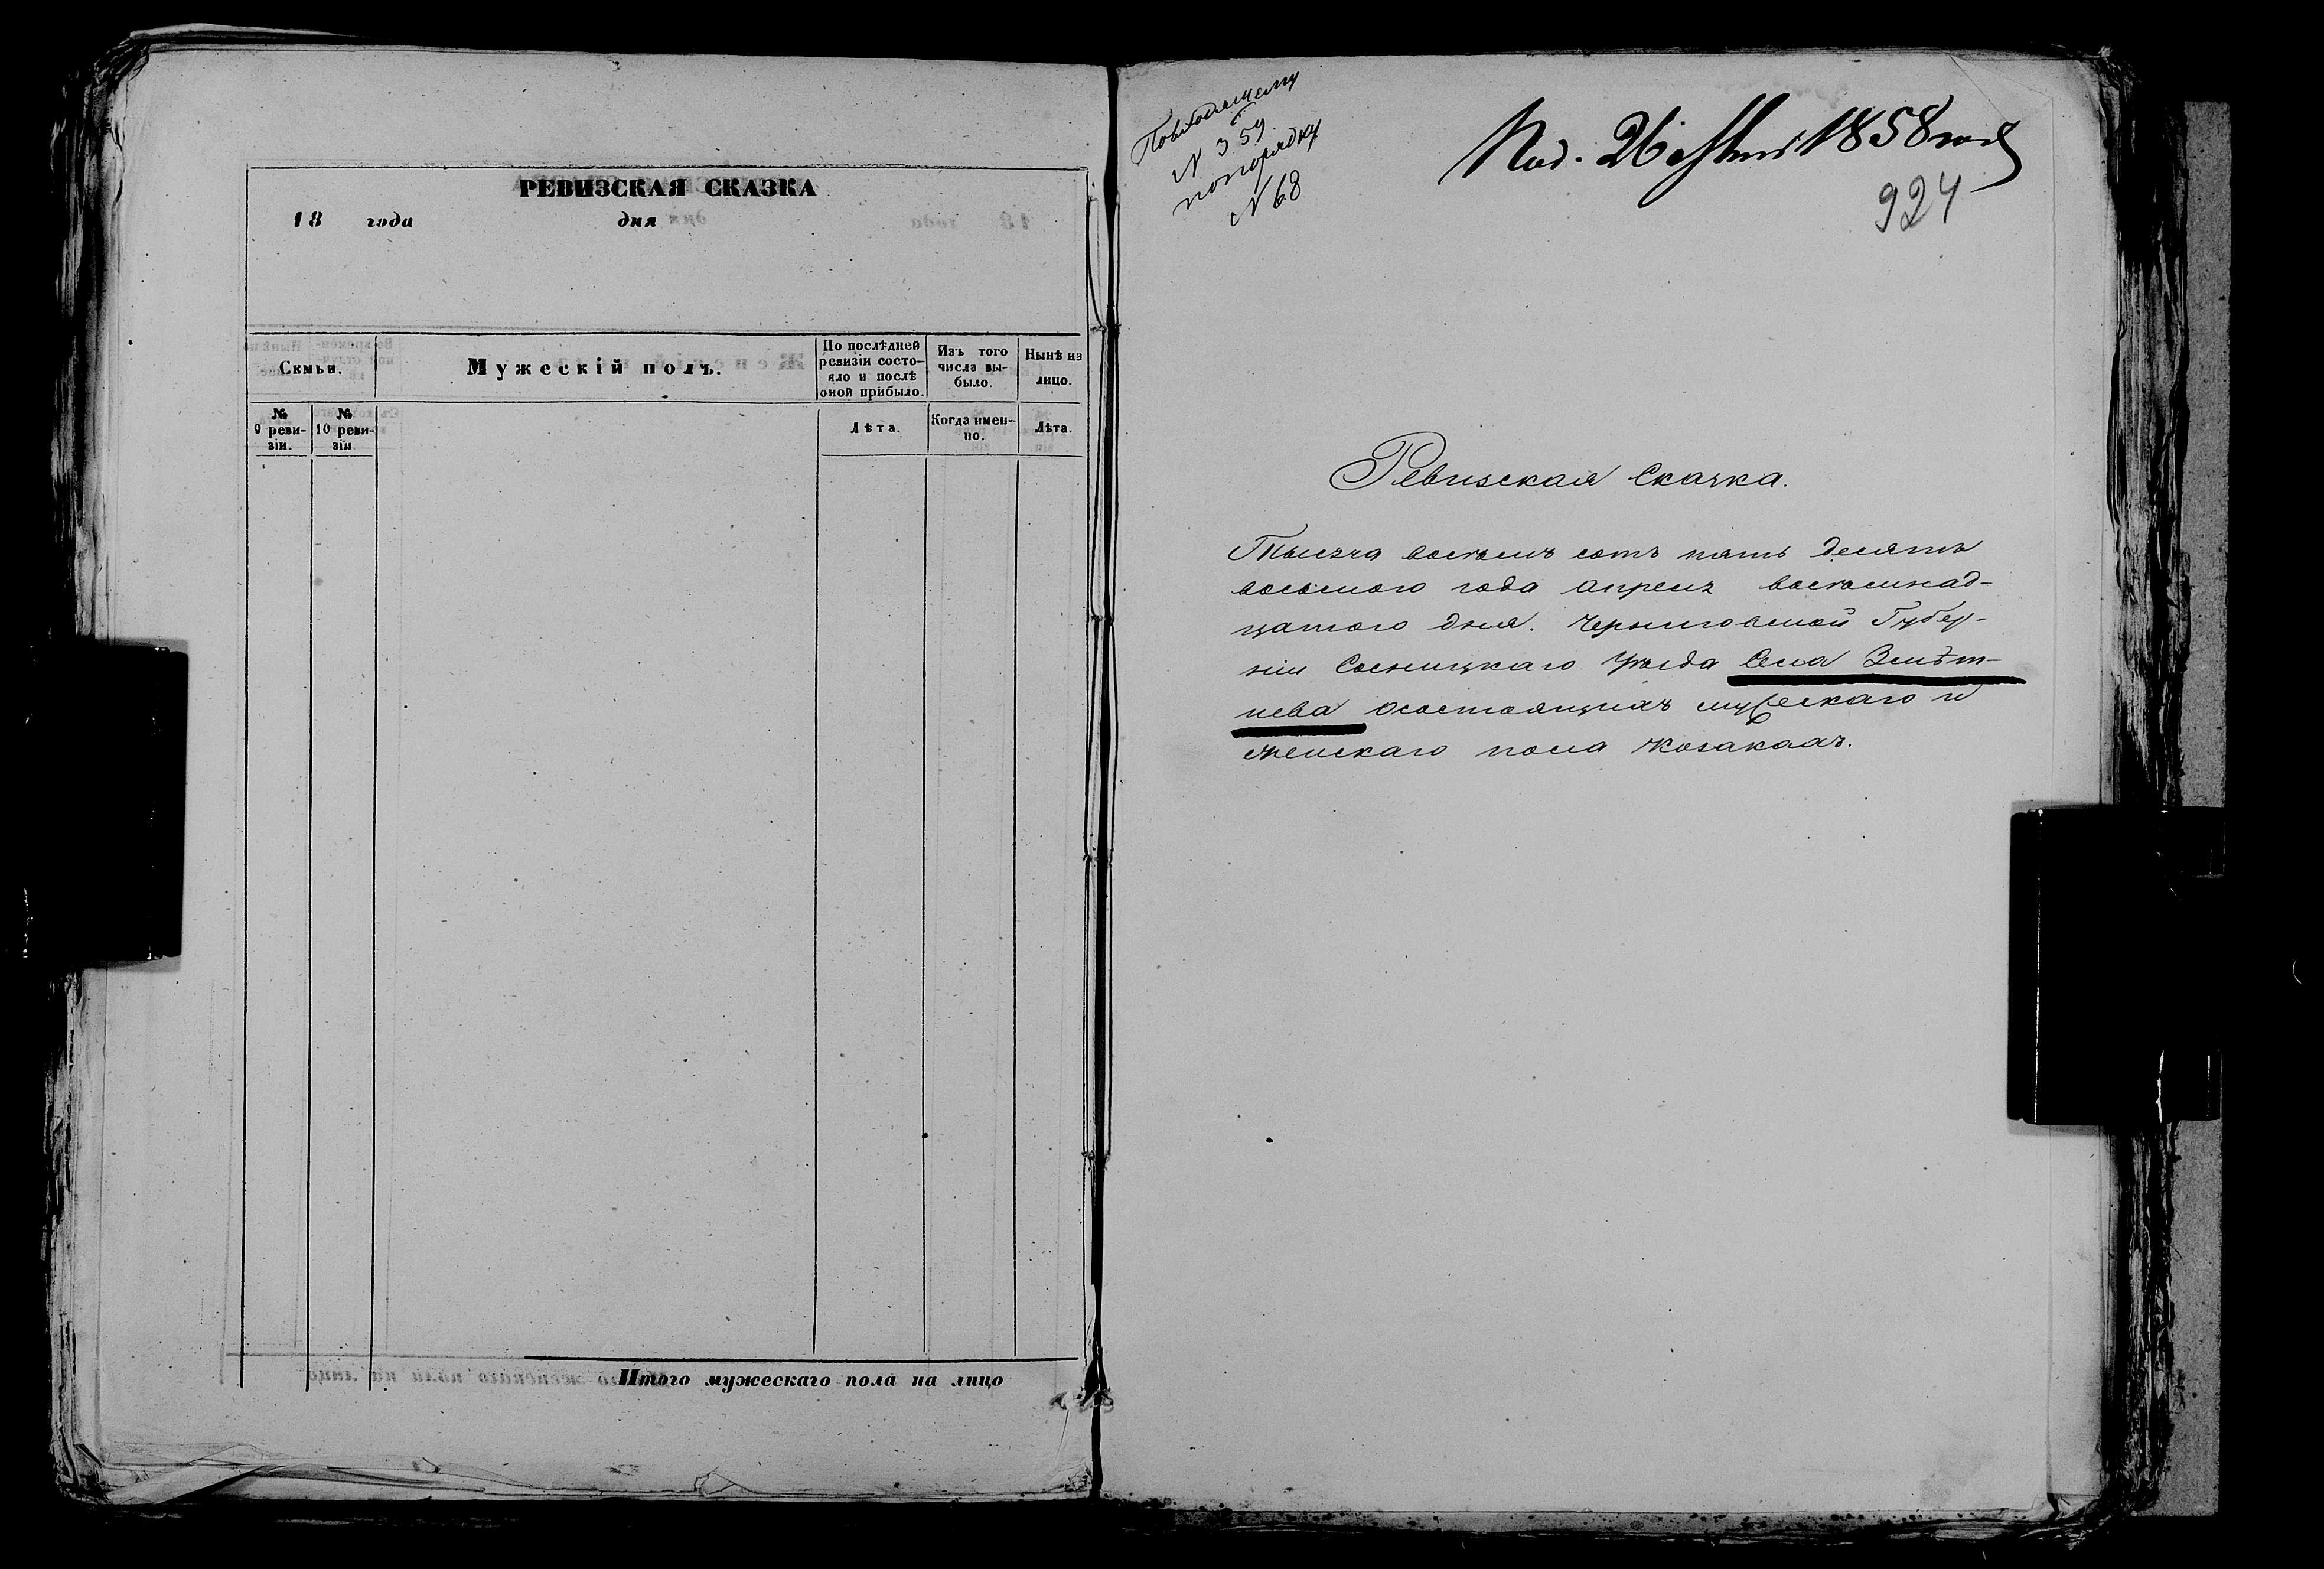 РЕВИЗСКАЯ СКАЗКА
18 года дня
Семьи.
Мужескій полъ.
По послѣдней ревизіи состо-
яло и послѣ оной прибыло.
Изъ того числа вы-
было.
Нынѣ на лицо.
№ 9 реви-
зіи.
№ 10 реви-
зіи
Лѣта.
Когда имен-
но.
Лѣта.
Итого мужескаго пола на лицо
Повходящему
N 359
попорядку
N 68
26 1858 года
924
Ревизская Скаска.
Тысяча восемь сотъ пять десятъ
восьмого года апреля восемнад-
цатого дня. Черниговской Губер-
ніи Сосницкаго уѣзда Села Змѣт-
нева осостоящихъ мужескаго и
женскаго пола козакахъ.